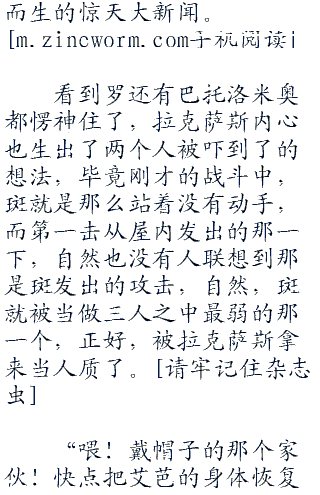 而生的惊天大新闻。
[m.zincworm.com手机阅读]
看到罗还有巴托洛米奥
都愣神住了，拉克萨斯内心
也生出了两个人被吓到了的
想法，毕竟刚才的战斗中，
斑就是那么站着没有动手，
而第一击从屋内发出的那一
下，自然也没有人联想到那
是斑发出的攻击，自然，斑
就被当做三人之中最弱的那
一个，正好，被拉克萨斯拿
来当人质了。[请牢记住杂志
虫]
“喂！戴帽子的那个家
伙！快点把艾芭的身体恢复